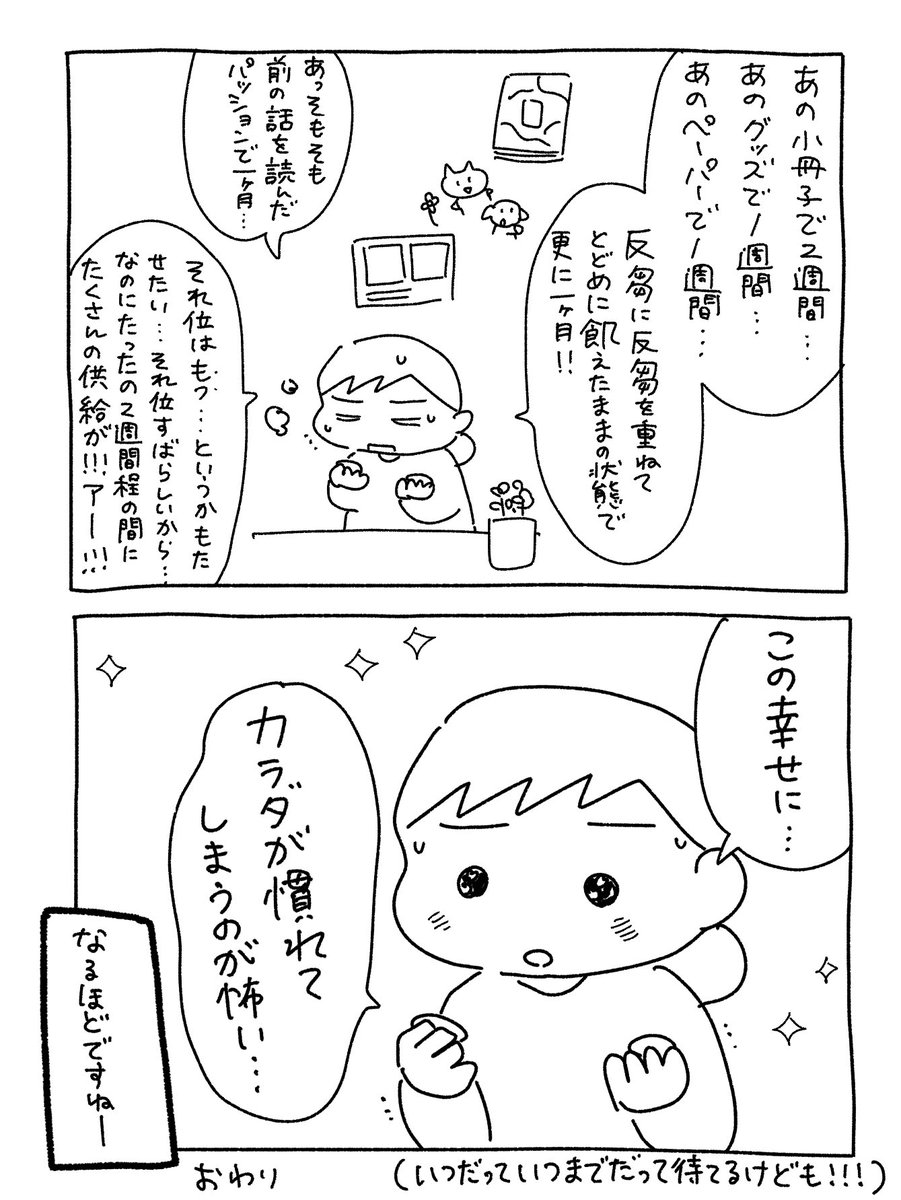 あの小冊子で2週間…
あのグッズで1週間…
あのペーパーで1週間…
反芻に反芻を重ねて
とどめに飢えたままの状態で
更に一ヶ月!!
あっそもそも
前の話を読んだ
パッションで一ヶ月…
それ位はもつ…というかもた
せたい…それ位すばらしいから…
なのにたったの2週間程の間に
たくさんの供給が!!!アー!!!
この幸せに…
カラダが慣れて
しまうのが怖い…
なるほどですねー
おわり
(いつだっていつまでだって待てるけども!!!)